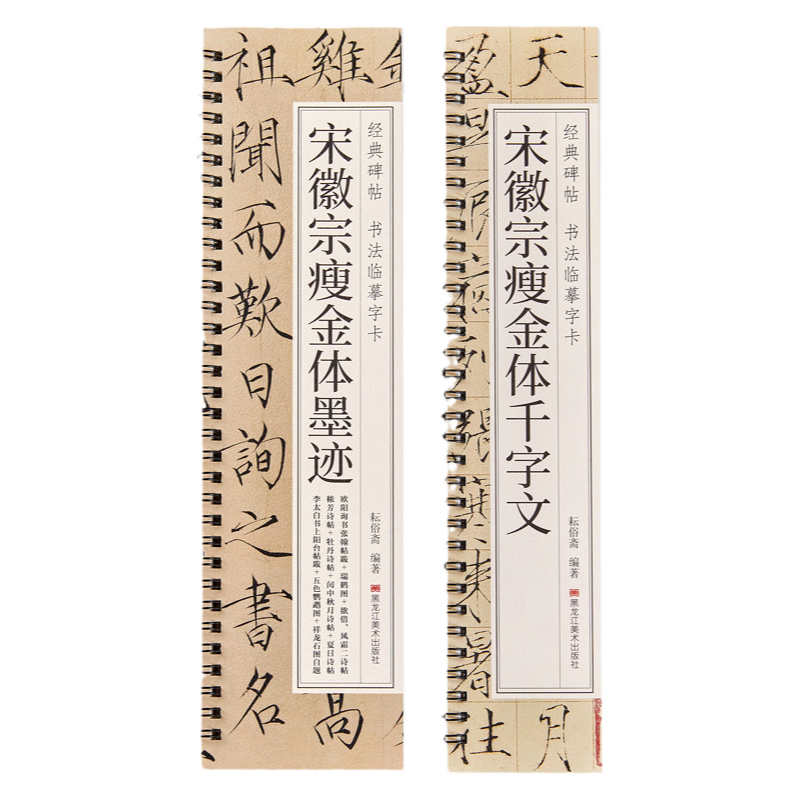 经典碑帖 书法临摹字卡
宋徽宗瘦金体墨迹
欧阳询书张翰帖跋+瑞鹤图+欲借、风霜二诗帖
秾芳诗帖+牡丹诗帖+闰中秋月诗帖+夏日诗帖
李太白书上阳台帖跋+五色鹦鹉图+祥龙石图自题
耘俗斋 编著
黑龙江美术出版社
雞
高
祖聞而歎曰詢之書名
经典碑帖 书法临摹字卡
宋徽宗瘦金体千字文
耘俗斋 编著
黑龙江美术出版社
天
月
盈昃辰宿列張寒来暑往